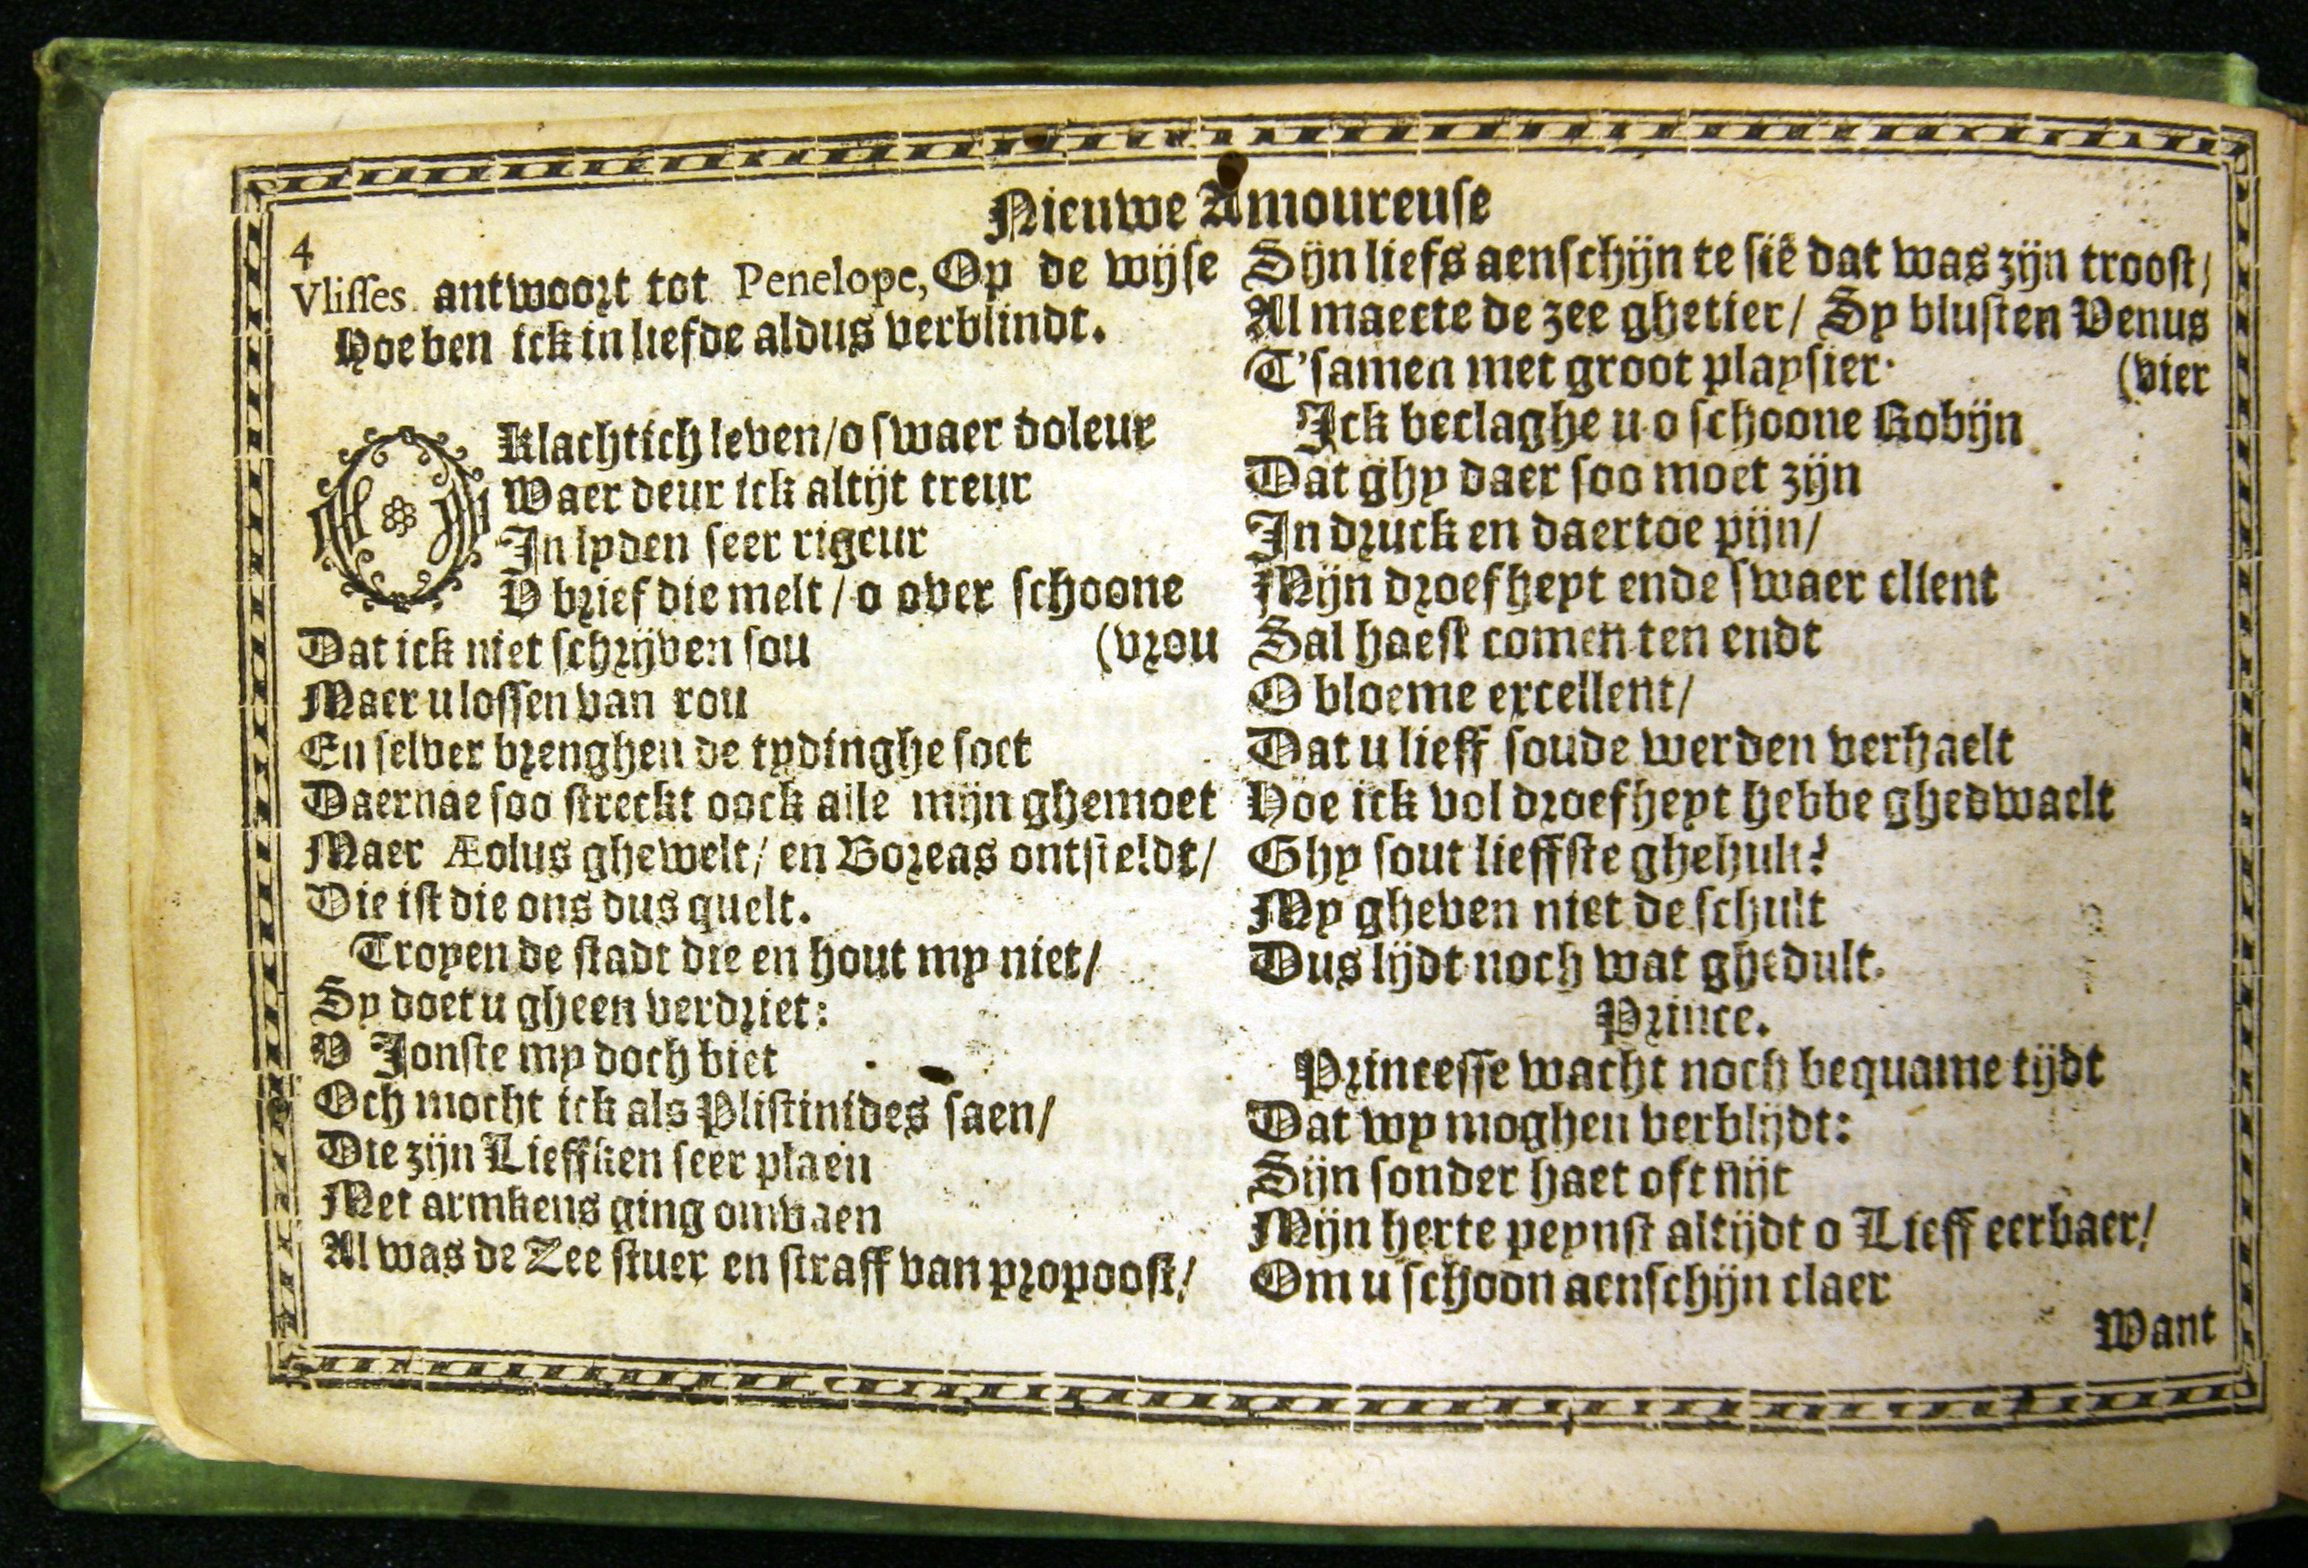 Nieuwe Amoureuse
4
Vlisses antwoort tot Penelope, Op de wijse
Hoe ben ick in liefde aldus verblindt.
O Klachtich leven/o swaer doleur
Waer deur ick altijt treur
In lyden seer rigeur
V brief die melt / o over schoone
Dat ick niet schrijven sou (vrou
Maer u lossen van rou
En selver brenghen de tydinghe soet
Daernae soo streckt oock alle mijn ghemoet
Maer Æolus ghewelt/ en Boreas ontsteldt/
Die ist die ons dus quelt.
Troyen de stadt die en hout my niet/
Sy doet u gheen verdriet:
V Jonste my doch biet
Och mocht ick als Plistinides saen/
Die zijn Lieffken seer plaen
Met armkens ging omvaen
Al was de Zee stuer en straff van propoost/
Sijn liefs aenschijn te siẽ dat was zijn troost/
Al maecte de zee ghetier/ Sy blusten Venus
T'samen met groot playsier. (vier
Ick beclaghe u o schoone Robijn
Dat ghy daer soo moet zijn
In druck en daertoe pijn/
Mijn droefheyt ende swaer ellent
Sal haest comen ten endt
O bloeme excellent/
Dat u lieff soude werden verhaelt
Hoe ick vol droefheyt hebbe ghedwaelt
Ghy sout lieffste ghehult?
My gheven niet de schult
Dus lijdt noch wat ghedult.
Prince.
Princesse wacht noch bequame tijdt
Dat wy moghen verblijdt:
Sijn sonder haet oft nijt
Mijn herte peynst altijdt o Lieff eerbaer/
Om u schoon aenschijn claer
Want